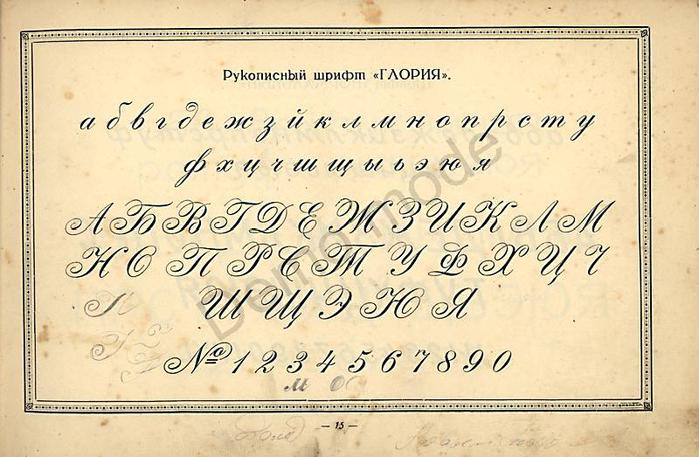 Рукописный шрифт «ГЛОРИЯ».
а б в г д е ж з й к л м н о п р с т у
ф х ц ч ш щ ы ь э ю я
А Б В Г Д Е Ж З И К Л М
Н О П Р С Т У Ф Х Ц Ч
Ш Щ Э Ю Я
№ 1 2 3 4 5 6 7 8 9 0
— 15 —
Demo mode